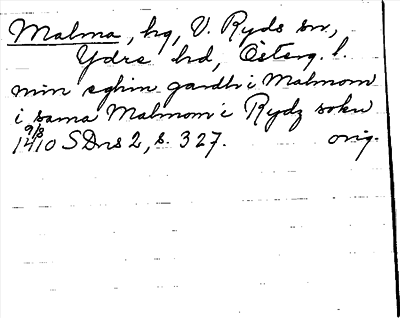 Malma, hg, V. Ryds sn,
Ydre hd, Österg. l.
min eghin gardh i Malmom
i sama Malmom i Rydz sokn
9/8 1410 SDns 2, s. 327. orig.